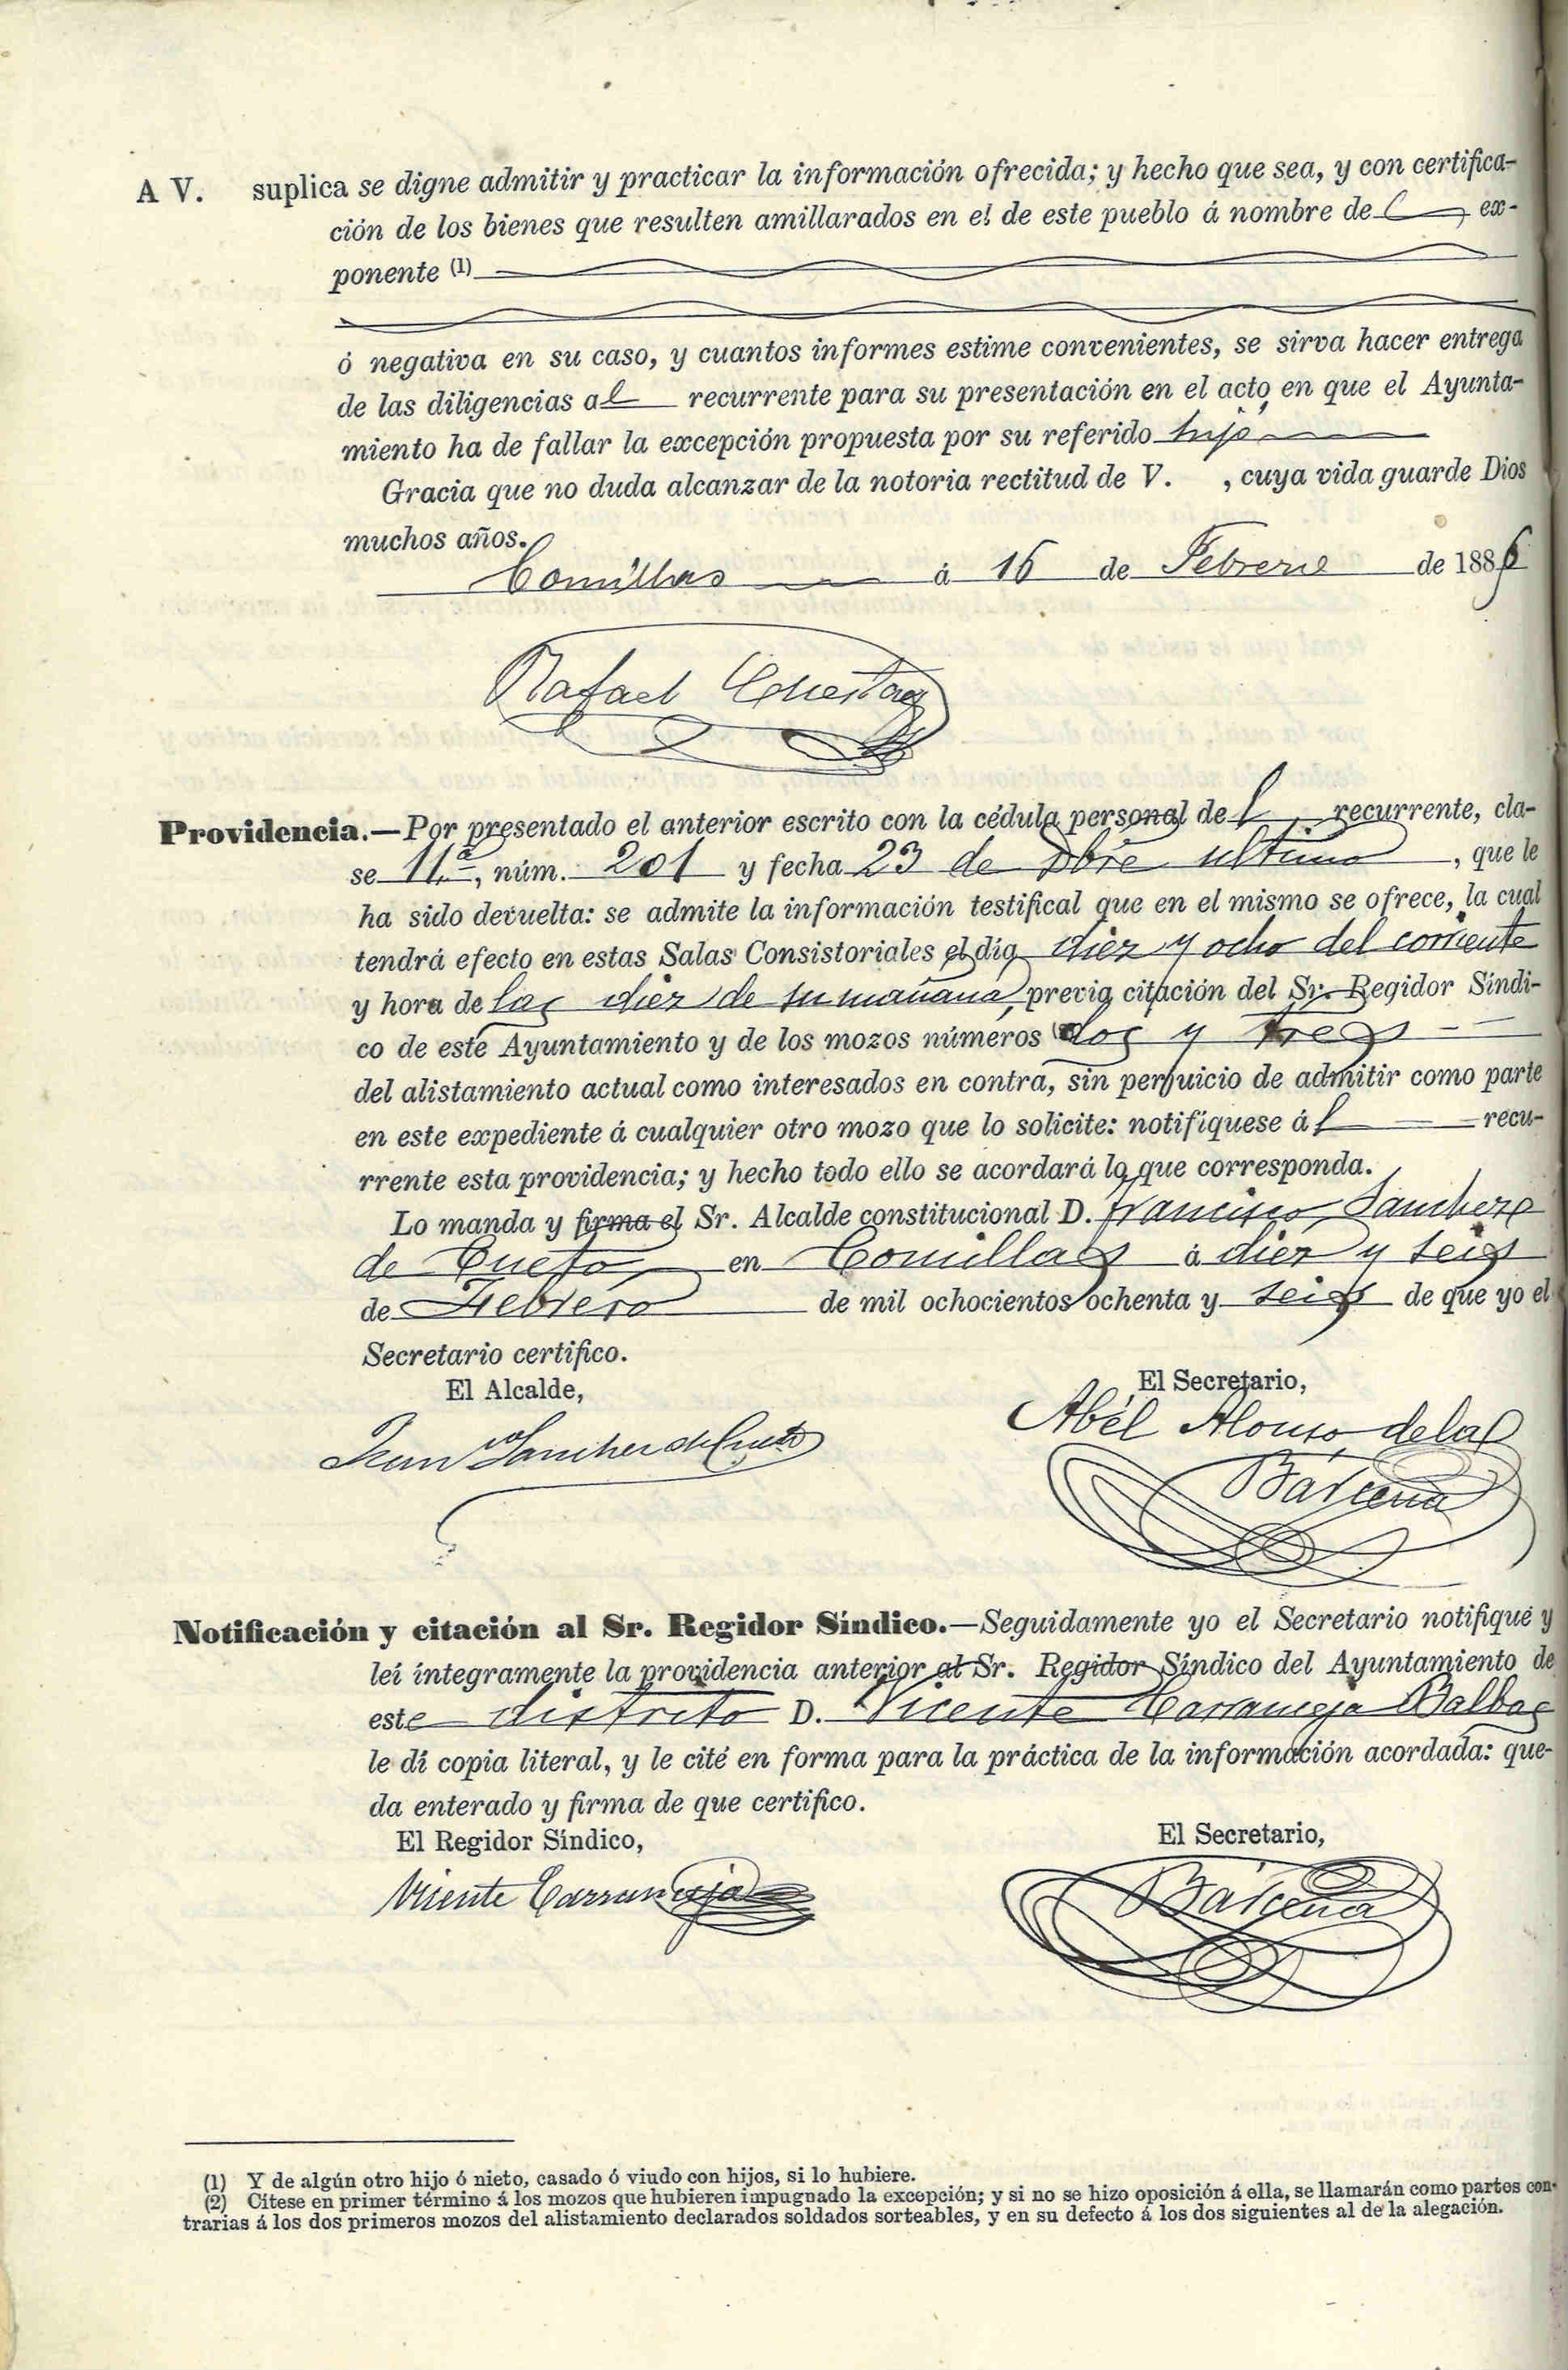 A V. suplica se digne admitir y practicar la información ofrecida; y hecho que sea, y con certifica-
ción de los bienes que resulten amillarados en el de este pueblo á nombre del ex-
ponente (1)
ó negativa en su caso, y cuantos informes estime convenientes, se sirva hacer entrega
de las diligencias al recurrente para su presentación en el acto en que el Ayunta-
miento ha de fallar la excepción propuesta por su referido hijo
Gracia que no duda alcanzar de la notoria rectitud de V. , cuya vida guarde Dios
muchos años.
Comillas á 16 de Febrero de 1886
Rafael
Providencia.—Por presentado el anterior escrito con la cédula personal del recurrente, cla-
se 11.ª, núm. 201 y fecha 23 de bre último, que le
ha sido devuelta: se admite la información testifical que en el mismo se ofrece, la cual
tendrá efecto en estas Salas Consistoriales el día diez y ocho del corriente
y hora de las diez de su mañana, previa citación del Sr. Regidor Síndi-
co de este Ayuntamiento y de los mozos números (2) dos y tres
del alistamiento actual como interesados en contra, sin perjuicio de admitir como parte
en este expediente á cualquier otro mozo que lo solicite: notifíquese ál recu-
rrente esta providencia; y hecho todo ello se acordará lo que corresponda.
Lo manda y firma el Sr. Alcalde constitucional D. Francisco Sanchez
de Cueto en Comillas á diez y seis
de Febrero de mil ochocientos ochenta y seis de que yo el
Secretario certifico.
El Alcalde,
El Secretario,
Fran.co Sanchez de Cueto
Abél Alonso de la
Bárcena
Notificación y citación al Sr. Regidor Síndico.—Seguidamente yo el Secretario notifiqué y
leí íntegramente la providencia anterior al Sr. Regidor Síndico del Ayuntamiento de
este distrito D. Vicente Carranceja Balbas
le dí copia literal, y le cité en forma para la práctica de la información acordada: que-
da enterado y firma de que certifico.
El Regidor Síndico,
El Secretario,
Vicente Carranceja
Bárcena
(1) Y de algún otro hijo ó nieto, casado ó viudo con hijos, si lo hubiere.
(2) Cítese en primer término á los mozos que hubieren impugnado la excepción; y si no se hizo oposición á ella, se llamarán como partes con-
trarias á los dos primeros mozos del alistamiento declarados soldados sorteables, y en su defecto á los dos siguientes al de la alegación.